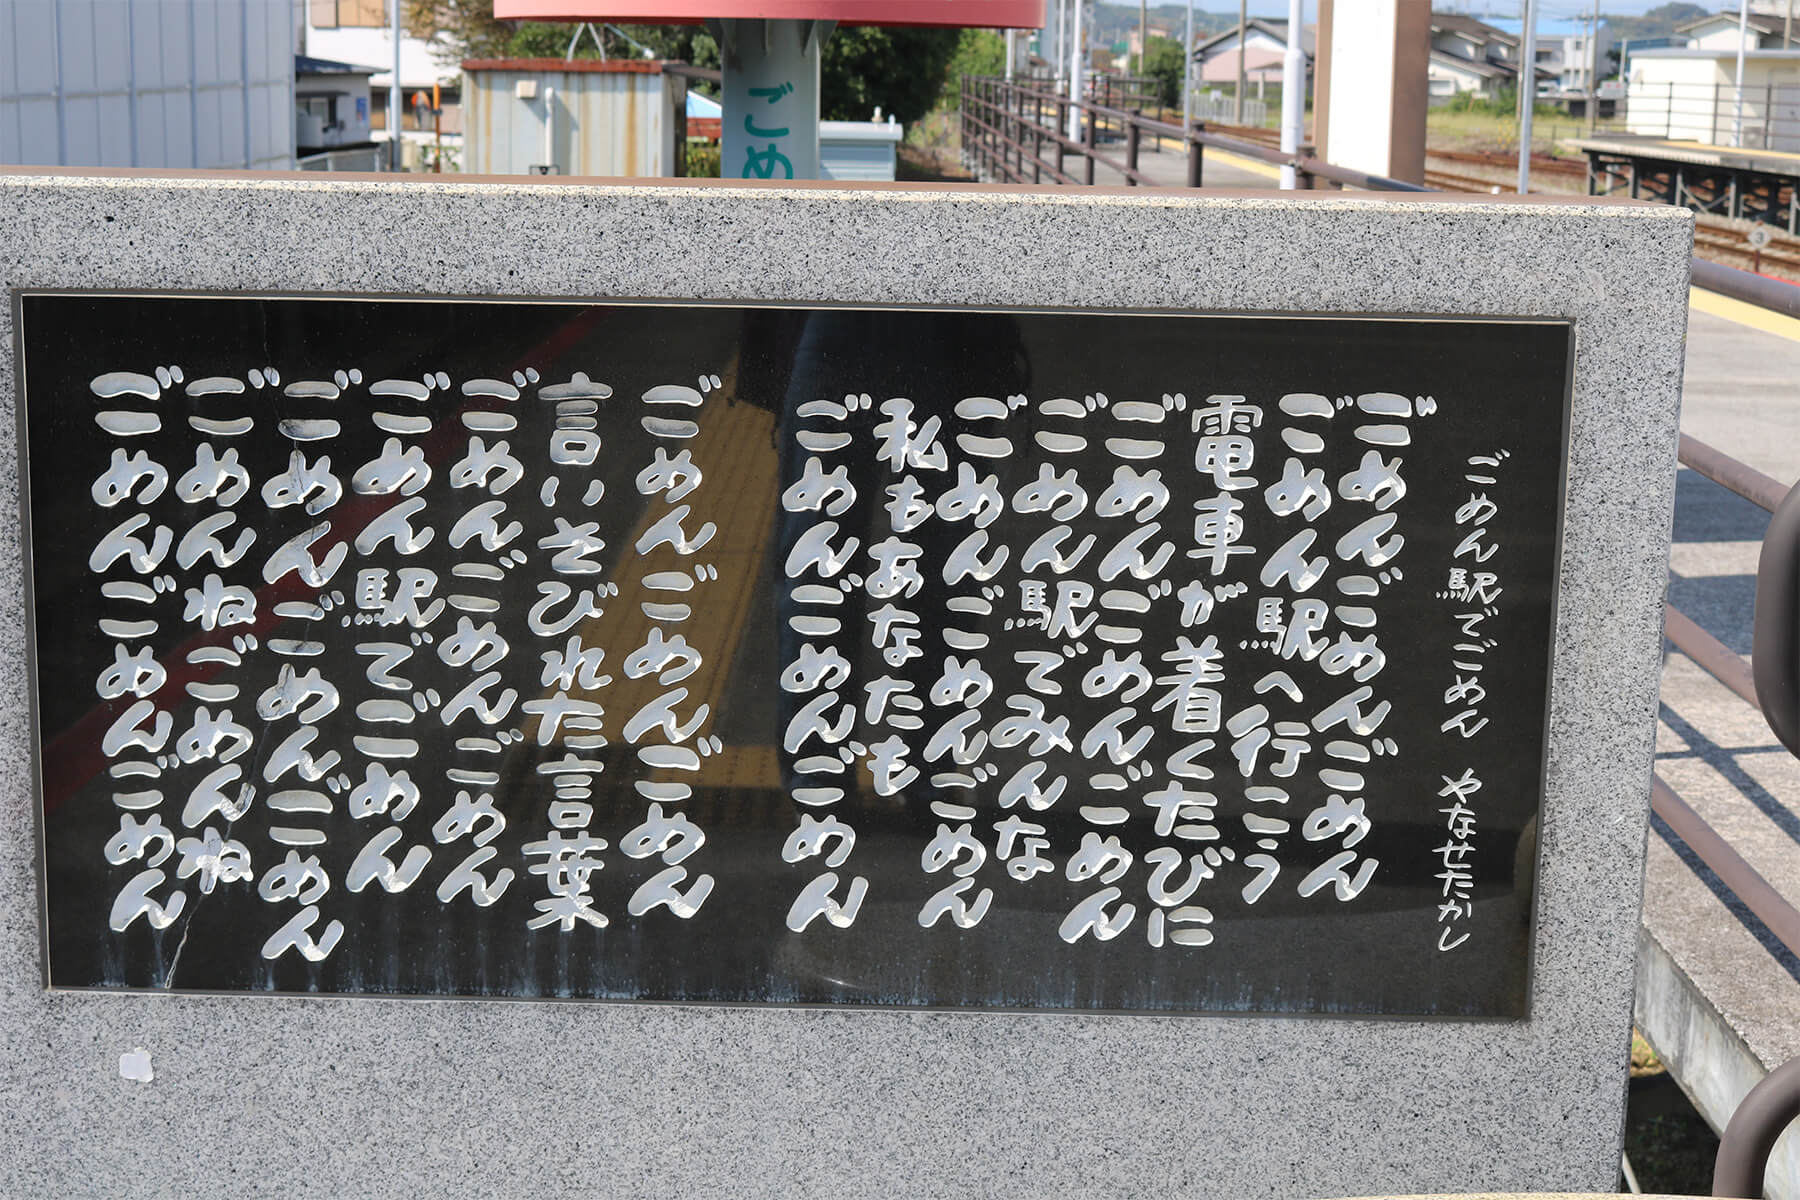 ごめん駅でごめん やなせたかし
ごめんごめんごめん
ごめん駅へ行こう
電車が着くたびに
ごめんごめんごめん
ごめん駅でみんな
ごめんごめんごめん
私もあなたも
ごめんごめんごめん
ごめんごめんごめん
言いそびれた言葉
ごめんごめんごめん
ごめん駅でごめん
ごめんごめんごめん
ごめんねごめんね
ごめんごめんごめん
ごめ
3